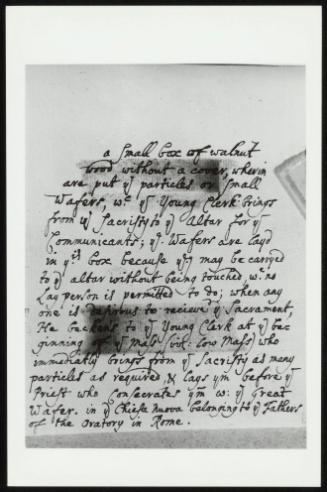 a small box of walnut
wood without a cover, wherin
are put yͤ particles or small
Wafers, wᶜʰ yͤ Young Clerk brings
from yͤ Sacristy to yͤ Altar for yͤ
Communicants; yͤ Wafers are layd
in yⁱˢ box because yᵉʸ may be carryed
to yͤ altar without being touched, wᶜʰ no
Lay person is permitted to do; when any
one is desirous to recieve yͤ Sacrament,
He beckens to yͤ Young Clerk at yͤ be=
ginning of yͤ Mass (viz: Low Mass) who
immediatly brings from yͤ Sacristy as many
particles as required, & lays yᵐ before yͤ
Priest who Consecrates yᵐ wᵗʰ yͤ great
Wafer. in yͤ Chiesa nuova belonging to yͤ Fathers
of the Oratory in Rome.